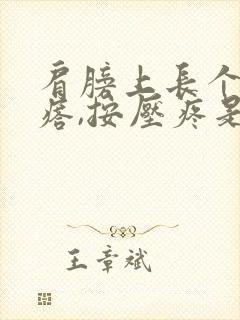 肩膀上長个
瘩,按壓疼是
王章斌